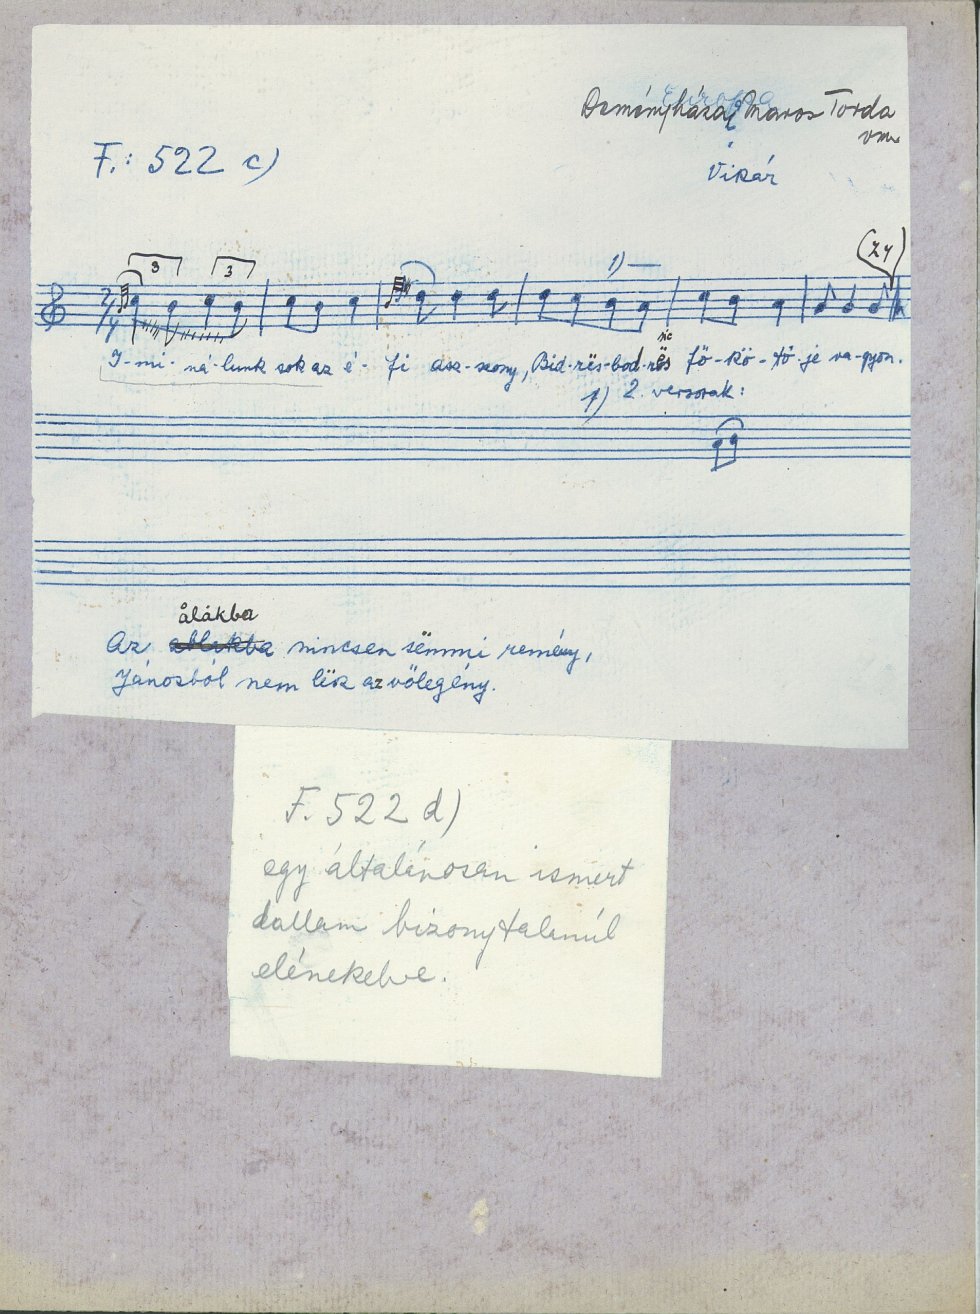 Maros Torda
vm
F.: 522 c)
Vikár
(Z4)
3 3 1)
2/4
I-mi- ná-lunk sok az é- fi asz-szony, Bid-rës-bod-rës fö-kö-tő-je va-gyon.
sic
1) 2. versszak:
ålákba
Az ablakba nincsen sëmmi remény,
Jánosból nem lësz az vőlegény.
F. 522 d)
egy általánosan ismert
dallam bizonytalanúl
elénekelve.